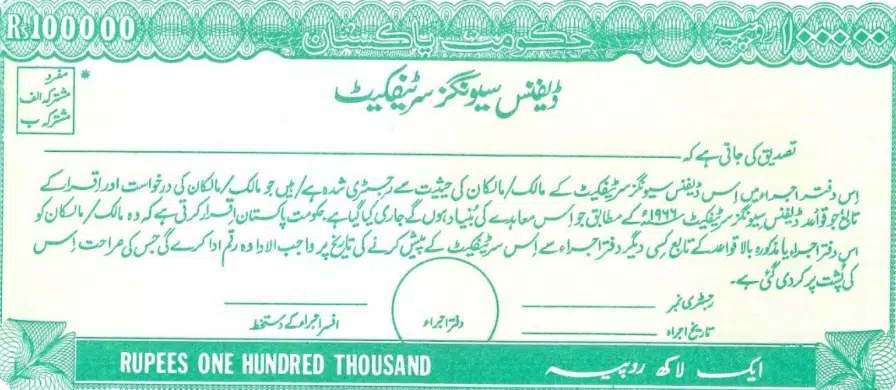 Rs 100000
حکومت پاکستان
۱۰۰۰۰۰ روپیہ
ڈیفنس سیونگز سرٹیفکیٹ
*
مفرد
مشترکہ الف
مشترکہ ب
تصدیق کی جاتی ہے کہ
اِس دفتر اجراء میں اِس ڈیفنس سیونگز سرٹیفکیٹ کے مالک/مالکان کی حیثیت سے رجسٹری شدہ ہے/ہیں جو مالک/مالکان کی درخواست اور اقرار کے
تابع جو قواعد ڈیفنس سیونگز سرٹیفکیٹ ۱۹۶۶ء کے مطابق جو اس معاہدے کی بُنیاد ہوں گے جاری کیا گیا ہے۔ حکومت پاکستان اقرار کرتی ہے کہ وہ مالک/مالکان کو
اس دفتر اجراء یا مذکورہ بالا قواعد کے تابع کسی دیگر دفتر اجراء سے اِس سرٹیفکیٹ کے پیش کرنے کی تاریخ پر واجب الادا وہ رقم ادا کرے گی جس کی صراحت اِس
کی پُشت پر کردی گئی ہے۔
رجسٹری نمبر
تاریخ اجراء
دفتر اجراء
افسر اجراء کے دستخط
RUPEES ONE HUNDRED THOUSAND
ایک لاکھ روپیہ